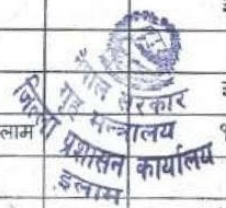 नेपाल सरकार
गृह मन्त्रालय
जिल्ला प्रशासन कार्यालय
इलाम
लाम